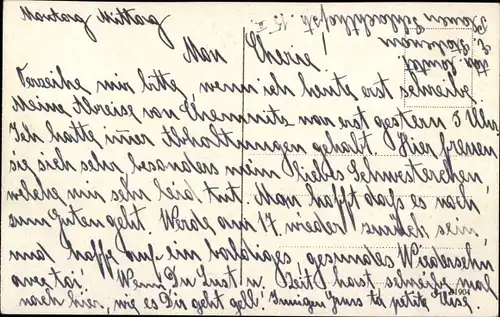 Montag Mittag
Mon Cherie!
Verzeihe mir bitte, wenn ich heute erst schreibe
Meine Abreise von Chemnitz war erst gestern 5 Uhr
Ich hatte imer Abhaltungen gehabt. Hier freuen
sie sich sehr, besonders mein liebes Schwesterchen,
welche mir sehr leid tut. Man hofft daß es noch
zum Guten geht. Werde am 17. wieder zurück sein,
und hoffe auf ein baldiges gesundes Wiedersehn
avec toi! Wenn Du Lust u. Zeit hast schreibe mal
nach hier, wie es Dir geht gell! Innigen Gruss ta petite Liese.
1904